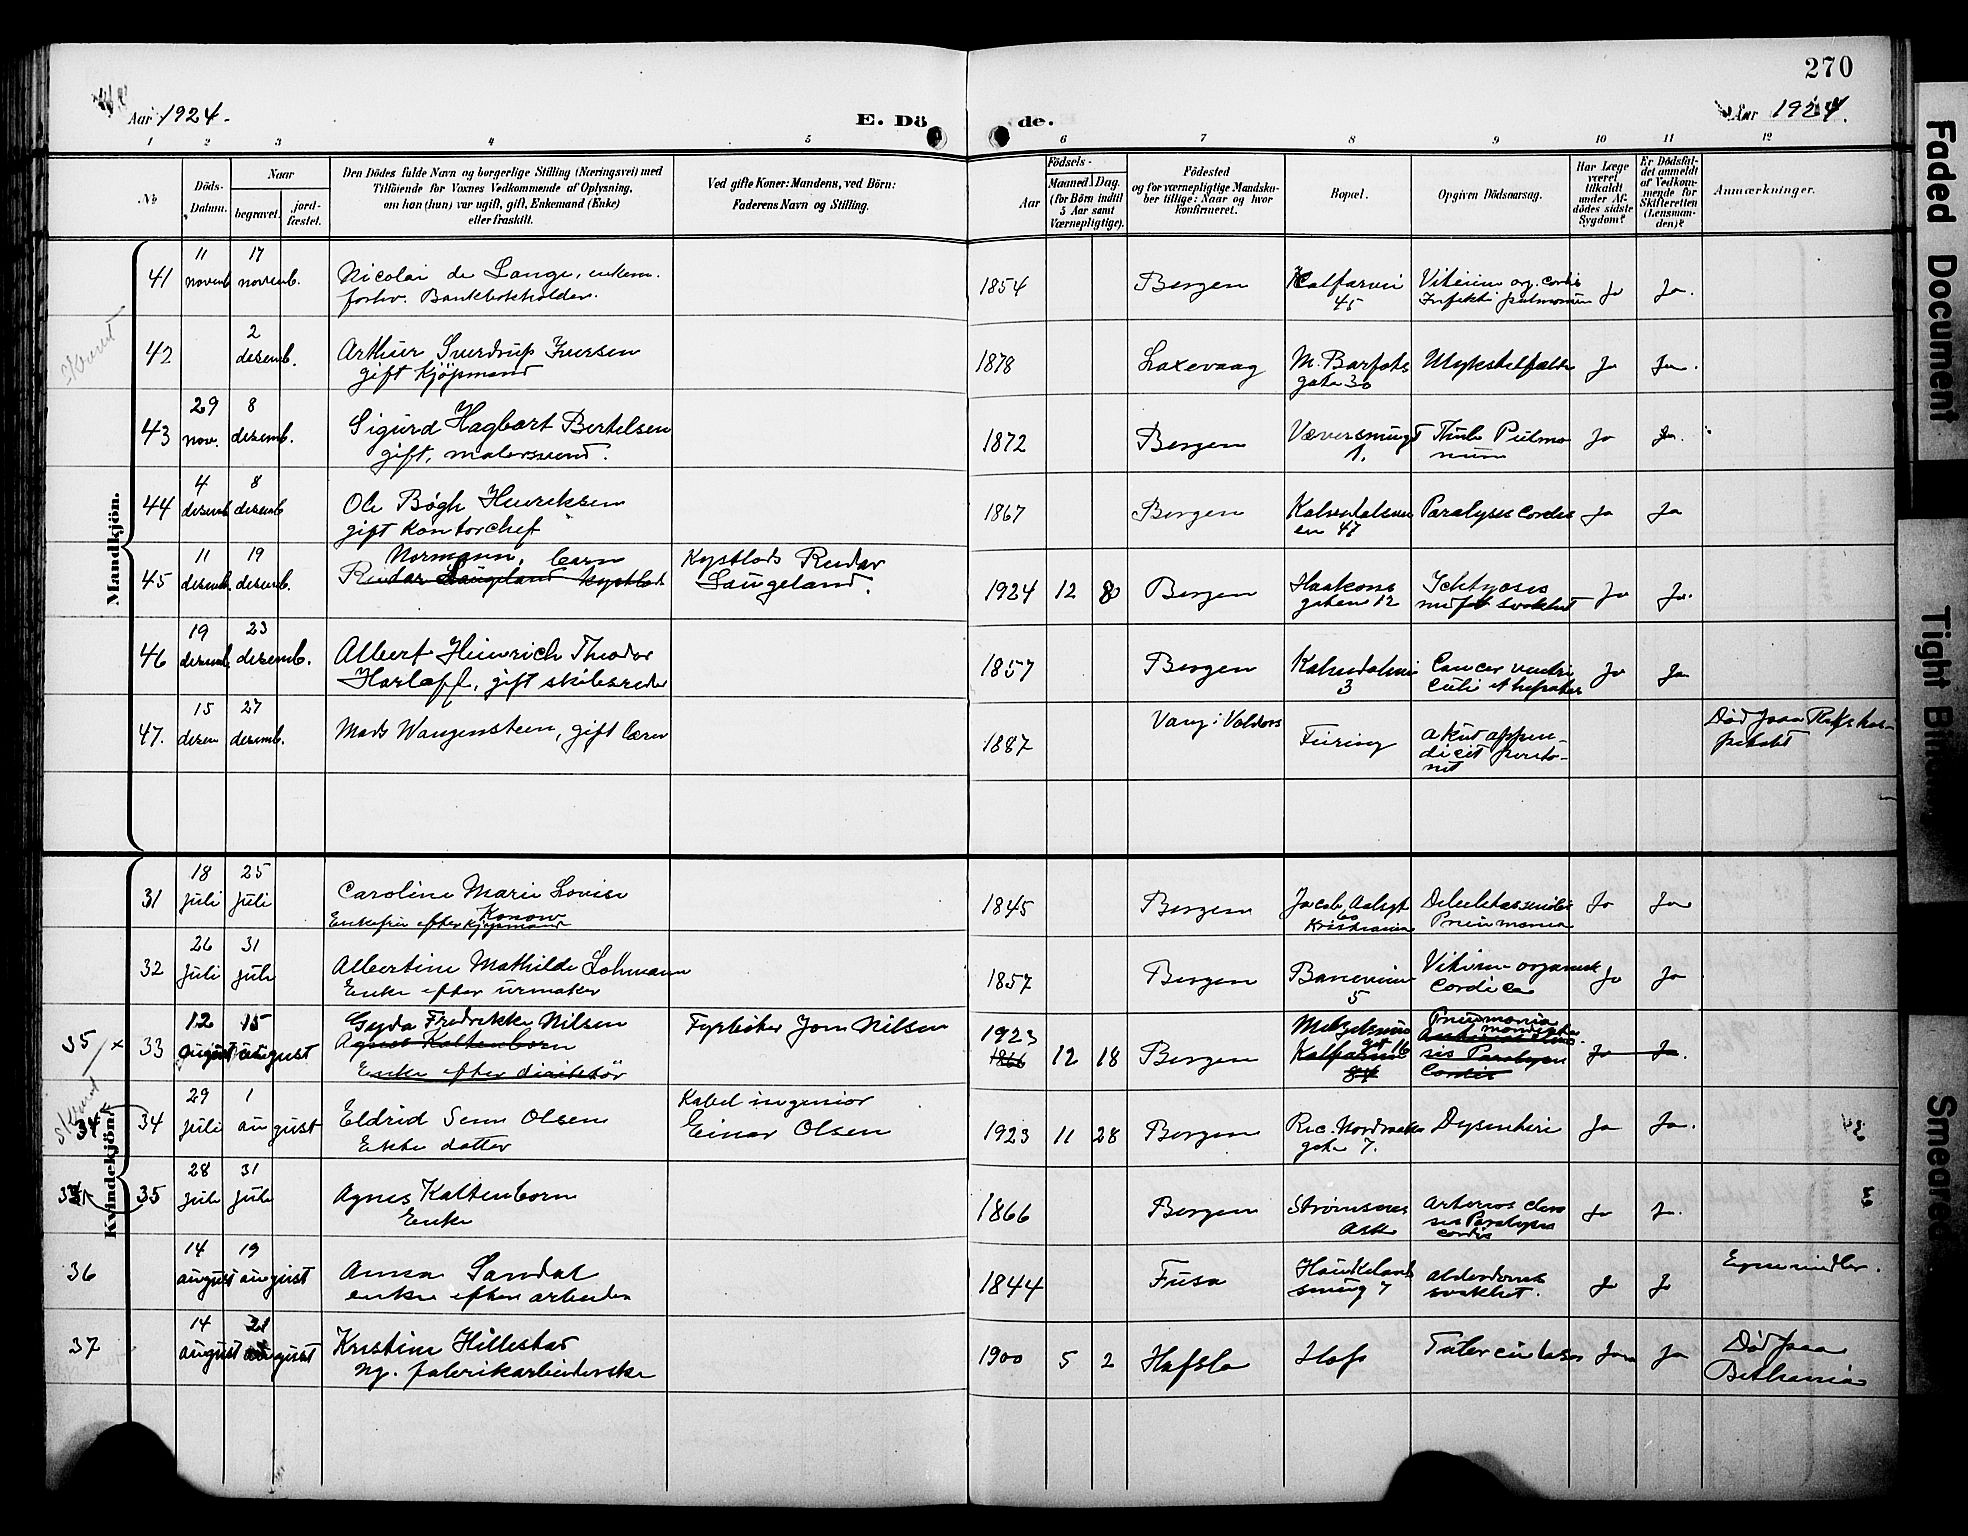 270
Aar 1924.
E. Döde.
Aar 1924.
1 2 3 4 5 6 7 8 9 10 11 12
No
Döds-Datum.
Naar
begravet.
jordfæstet.
Den Dödes fulde Navn og borgerlige Stilling (Næringsvei) med
Tilföiende for Voxnes Vedkommende af Oplysning,
om han (hun) var ugift, gift, Enkemand (Enke)
eller fraskilt.
Ved gifte Koner: Mandens, ved Börn:
Faderens Navn og Stilling.
Födsels-
Aar
Maaned. Dag.
(for Börn indtil
5 Aar samt
Værnepligtige).
Födested
og for værnepligtige Mandskaber tillige: Naar og hvor
konfirmeret.
Bopæl.
Opgiven Dödsaarsag.
Har Læge
været
tilkaldt
under Afdödes sidste
Sygdom?
Er Dödsfaldet anmeldt
af Vedkommende for
Skifteretten
(Lensmanden)?
Anmærkninger.
Mandkjön.
41 11 novemb. 17 novemb. Nicolai de Lange, enkem.
forhv. Bankbokholder.
1854 Bergen Kalfarvei 45 Vitium org. cordis Ja Ja.
42 2 desemb. Arthur Sverdrup Iversen
gift kjöpmand
1878 Laxevaag M. Barfots gate 30 Ja Ja.
43 29 nov. 8 desemb. Sigurd Hagbart Bertelsen
gift, malersvend.
1872 Bergen Væversmugt 1. Tub. Pulmonum Ja Ja.
44 4 desemb 8 desemb Ole Bøgh Henriksen
gift kontorchef
1867 Bergen Kalvedalsveien 47 Paralysis Cordis Ja Ja
45 11 desemb. 19 desemb. Normann, barn
Reidar Laugeland kystlods
Kystlods Reidar
Laugeland.
1924 12 8 Bergen Haakons gaten 12 Ichtyosis
medfødt svakhet Ja Ja.
46 19 desemb. 23 desemb. Albert Heinrich Theodor
Harloff, gift skibsreder
1857 Bergen Kalvedalsvei 3 Cancer ventriculi et hepatis Ja Ja
47. 15 desem 27 desemb. Mads Wangensteen, gift lærer
1887 Vang i Valdres Feiring akut appendicit peritonit Død paa Rikshospitalet
Kvindekjön.
31 18 juli 25 juli Caroline Marie Lovise
Konow
Enkefru efter kjøpmand
1845 Bergen Jacob Aalsgt 60
Kristiania Debilitas senilis
Pneumonia Ja Ja
32 26 juli 31 juli Albertine Mathilde Lohmann
Enke efter urmaker
1857 Bergen Baneveien 5 Vitium organisk
cordis Ja Ja
35 x 33 12 august 15 august Gyda Fredrikke Nilsen
Agnes Kaltenborn
Enke efter direktör
Fyrbøter Jom Nilsen
1923
1866 12 18 Bergen Kalfarvei 84 Pneumonia
Paralysis
Cordis Ja Ja.
34 34 29 juli 1 august Eldrid Senn Olsen
Ekte datter
Kabel ingeniør
Einar Olsen
1923 11 28 Bergen Ric. Nordraaks gate 7. Dysenteri Ja Ja.
35 28 juli 31 juli Agnes Kaltenborn
Enke
1866 Bergen Strømsnes
Ask Arterios clerosis Paralysis
cordis Ja Ja.
36 14 august 19 august Anna Sandal
enke efter arbeider
1844 Fusa Haukelandsmug 7 alderdomssvakhet. Ja Ja
37 14 august 21 august Kristine Hillestad
ug. fabrikarbeiderske
1900 5 2 Hafslo Hafs Tuberculoses Ja Ja Død paa
Bethania
Faded Document
Tight Binding
Smeared